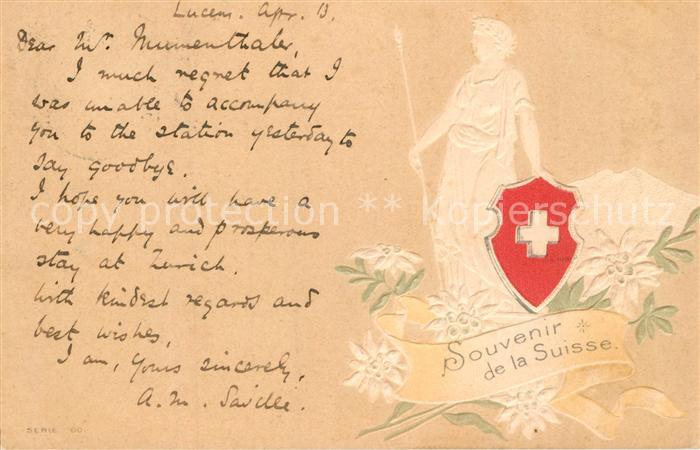 Lucern. Apr. 13.
Dear Mr. Mumenthaler,
I much regret that I
was unable to accompany
you to the station yesterday to
say goodbye.
I hope you will have a
very happy and prosperous
stay at Zurich.
With kindest regards and
best wishes,
I am, yours sincerely,
A. M. Saville.
Souvenir
de la Suisse.
SERIE 60.
copy protection ** Kopierschutz